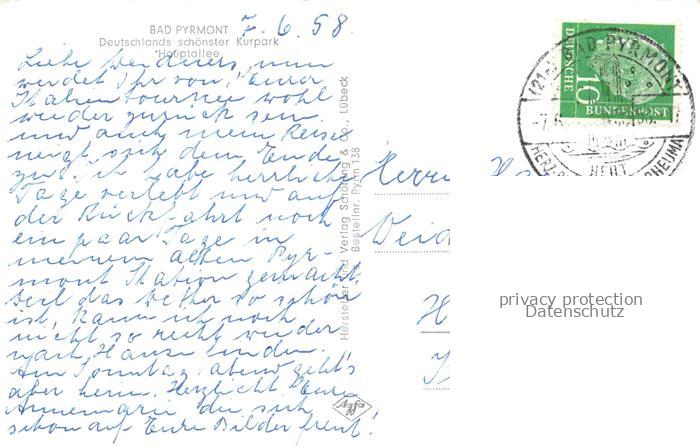 BAD PYRMONT
Deutschlands schönster Kurpark
Hauptallee
7.6.58.
Liebe, nun
werdet Ihr von Eurer
Italientournee wohl
wieder zurück sein
und auch meine Reise
neigt sich dem Ende
zu. Ich habe herrliche
Tage verlebt und auf
der Rückfahrt noch
ein paar Tage in
meinem alten Pyr-
mont Station gemacht.
Weil das Wetter so schön
ist, kann ich noch
nicht so recht wieder
nach Hause finden.
Am Sonntag abend geht's
aber heim. Herzlichst Eure
Annemarie die sich
schon auf Eure Bilder freut!
Hersteller und Verlag Schöning & Co., Lübeck
Bestellnr. Pyrm 138
Agfa
Herrn
Weid
H
DEUTSCHE
BUNDESPOST
10
(21a) BAD PYRMONT
HEILT
HERZ
RHEUMA
privacy protection
Datenschutz